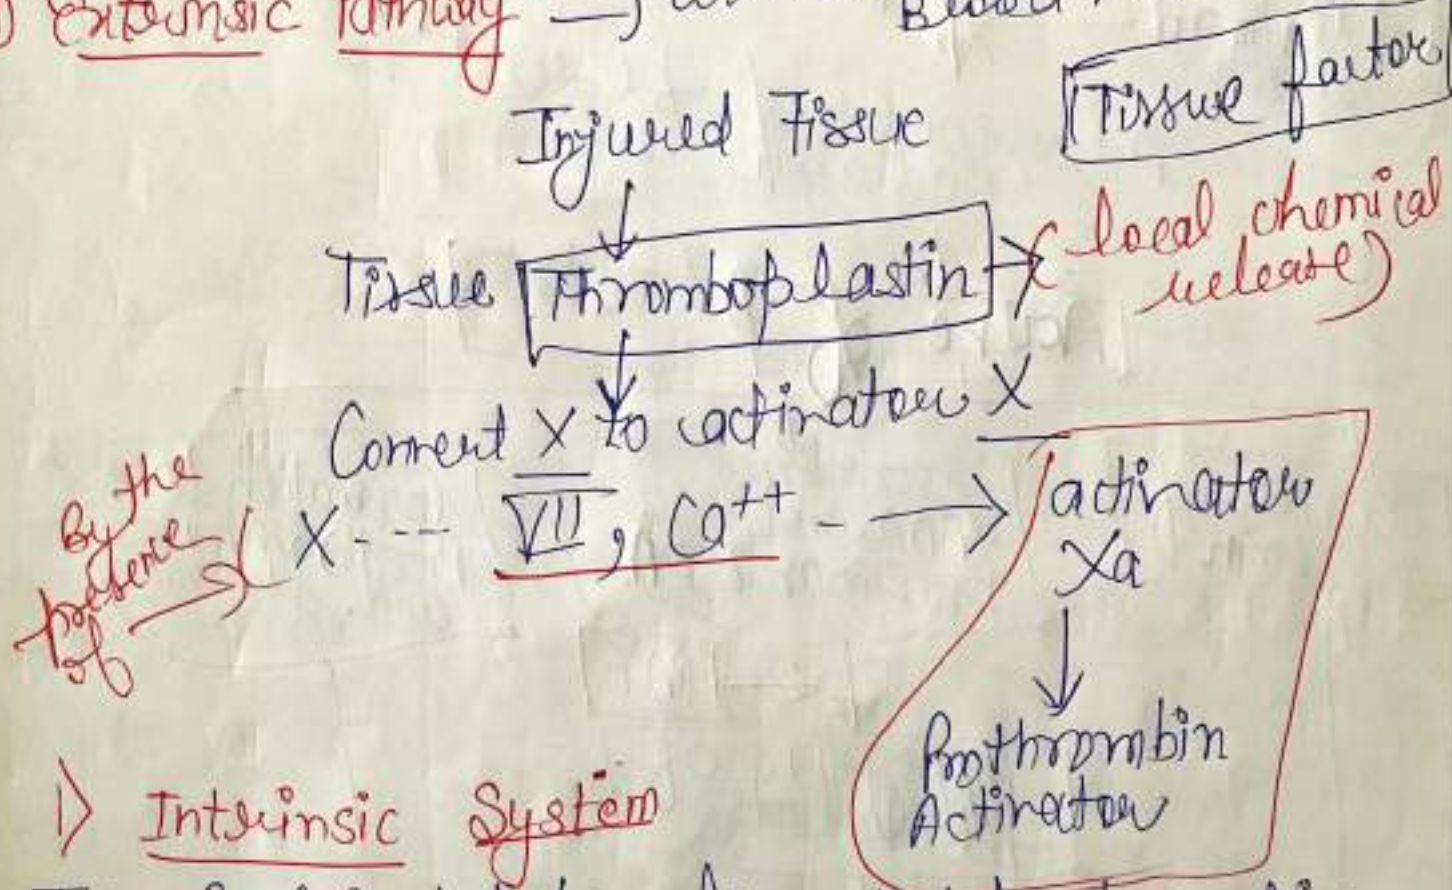 Extrinsic Pathway →
Blood
Tissue factor
Injured Tissue
↓
Tissue Thromboplastin → (local chemical
release)
↓
Convert X to activator X
By the
presence
of
X---- VII, Ca++ - → activator
Xa
↓
Prothrombin
Activator
1) Intrinsic System